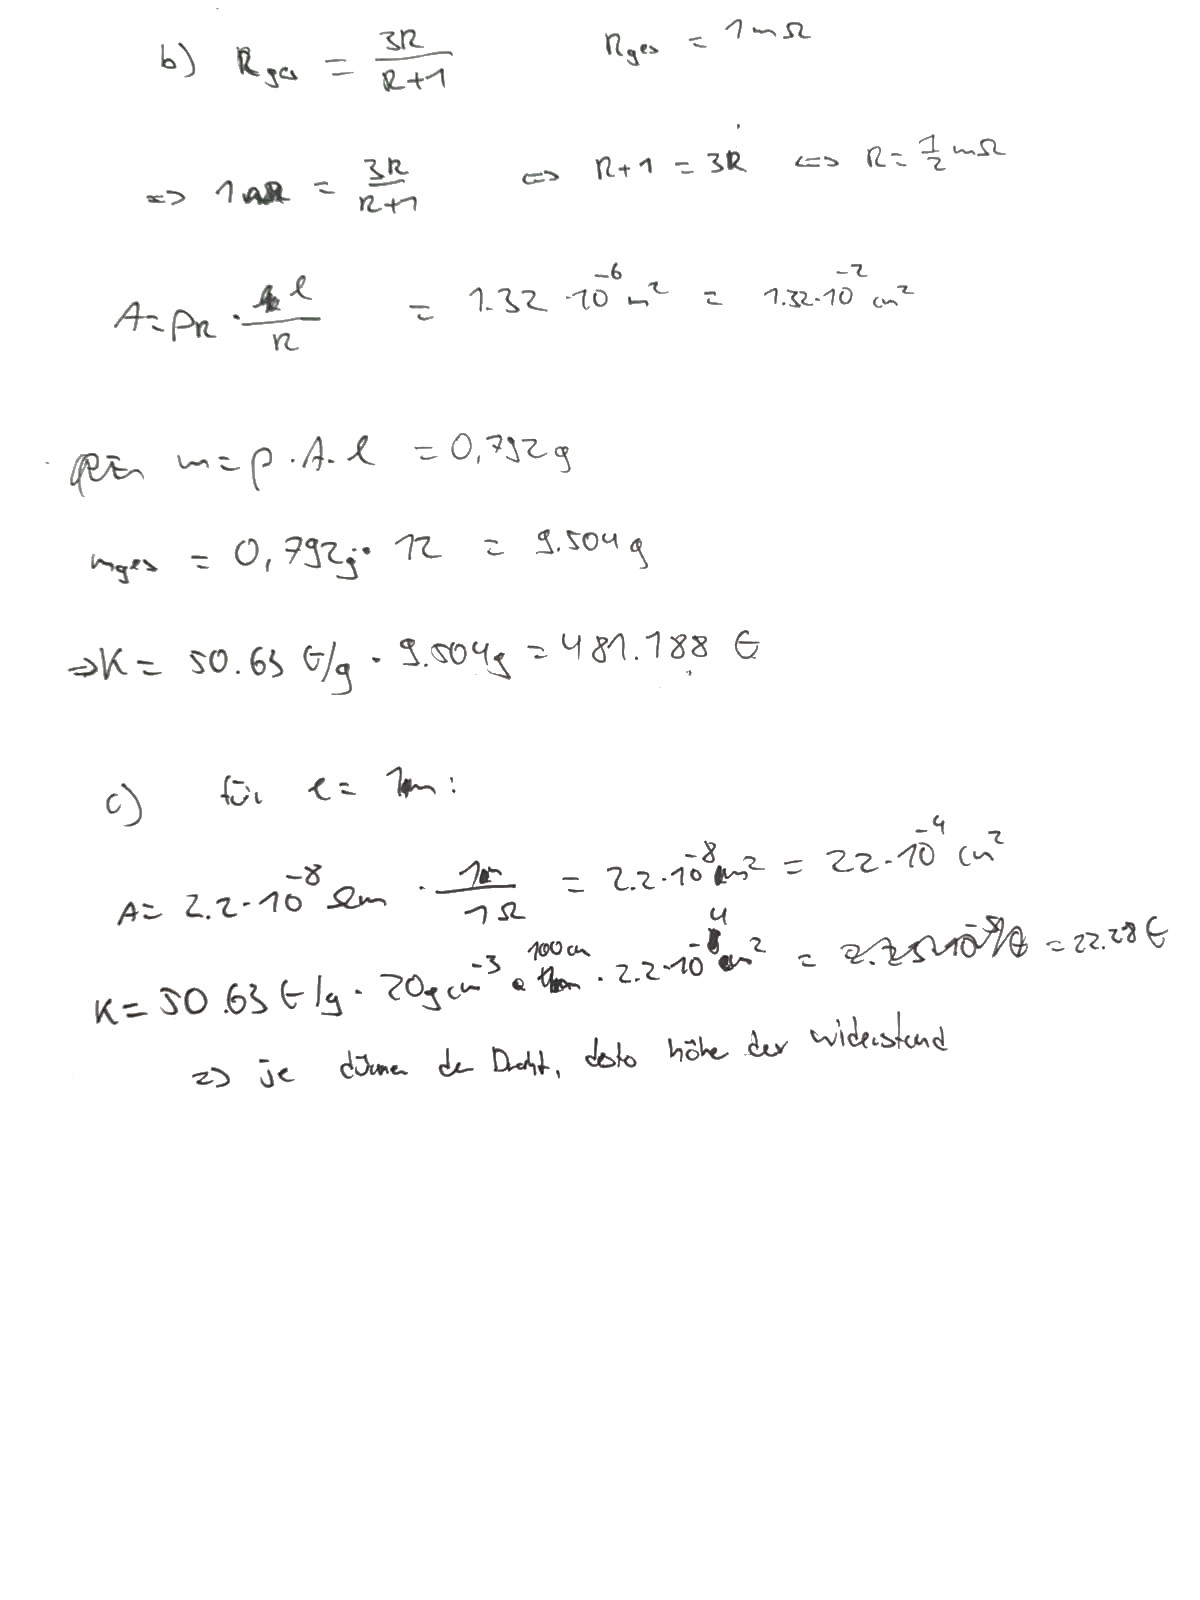 b) R_ges = 3R / (R+1) R_ges = 1mΩ
=> 1 = 3R / (R+1) <=> R+1 = 3R <=> R = 1/2 mΩ
A = ρ_R · l / R = 1.32 · 10^-6 m² = 1.32 · 10^-2 cm²
m = ρ · A · l = 0,792g
m_ges = 0,792g · 12 = 9.504g
=> K = 50.63 €/g · 9.504g = 481.188 €
c) für l = 1m:
A = 2.2 · 10^-8 Ωm · 1m / 1Ω = 2.2 · 10^-8 m² = 22 · 10^-4 cm²
K = 50.63 €/g · 20g cm^-3 · 100cm · 2.2 · 10^-4 cm² = 22.28 €
=> je dünner der Draht, desto höhe der widerstand